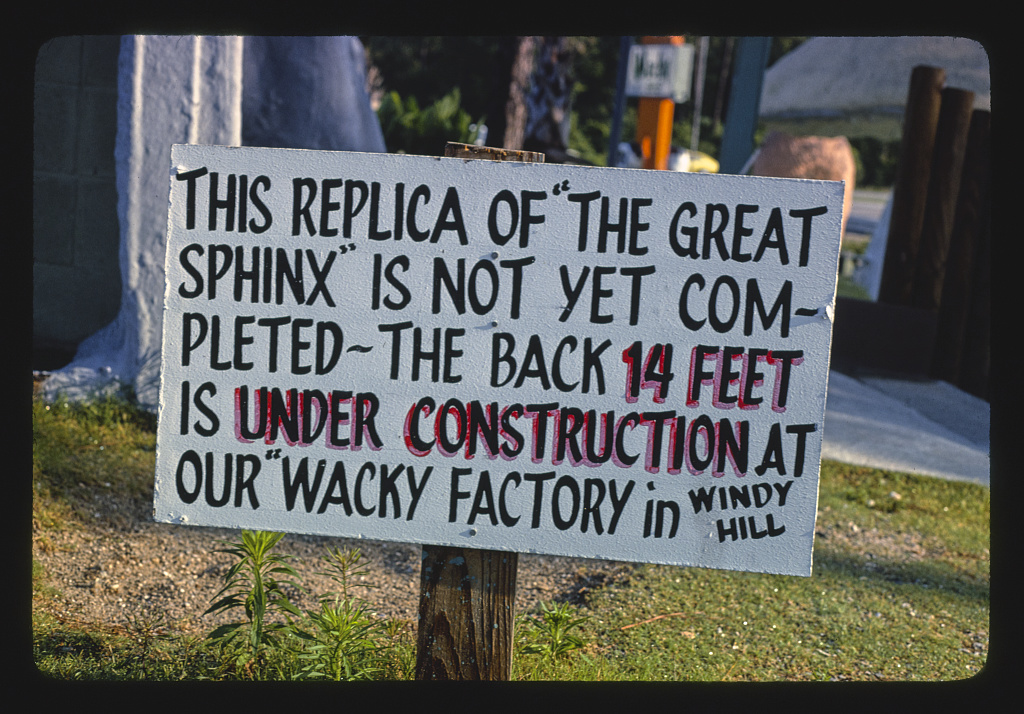 THIS REPLICA OF "THE GREAT
SPHINX" IS NOT YET COM~
PLETED~THE BACK 14 FEET
IS UNDER CONSTRUCTION AT
OUR "WACKY FACTORY in WINDY
HILL